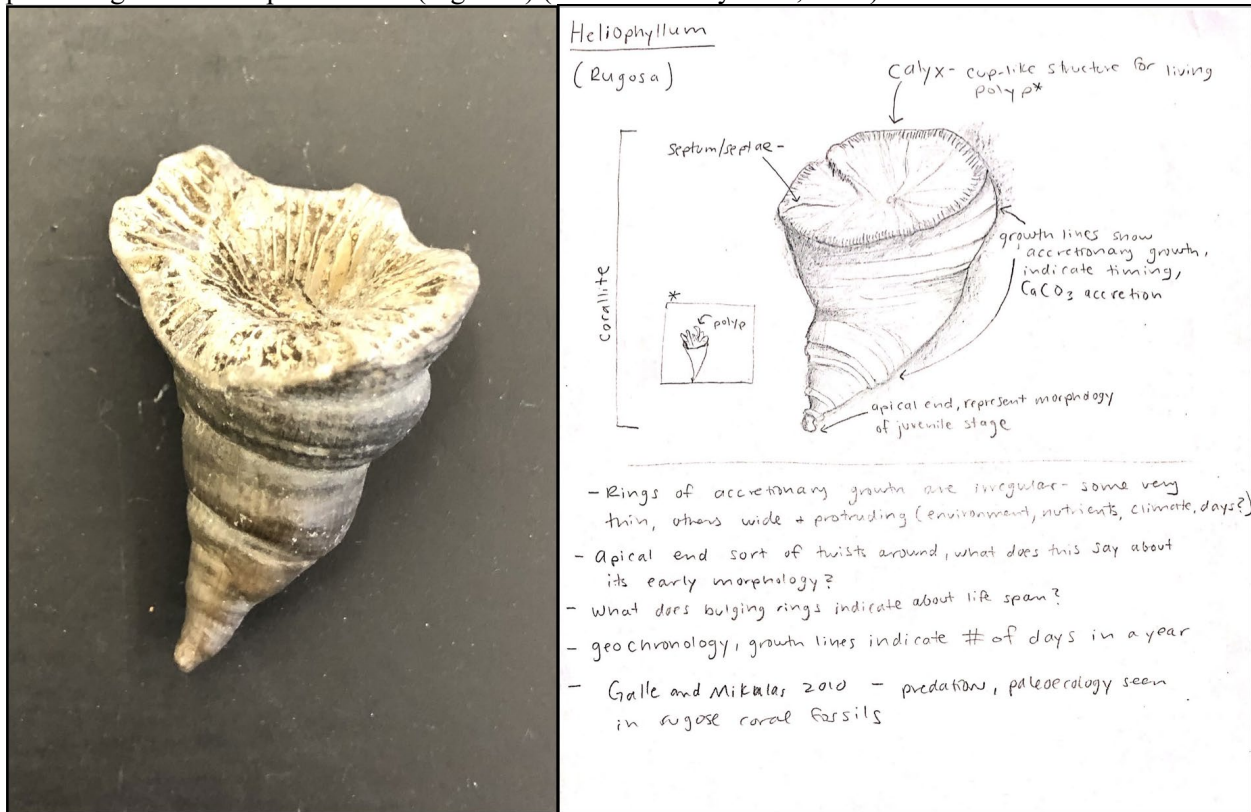 Heliophyllum
(Rugosa)
Calyx - cup-like structure for living
polyp*
septum/septae -
growth lines show
accretionary growth,
indicate timing,
CaCO3 accretion
corallite
*
polyp
apical end, represent morphology
of juvenile stage
- Rings of accretionary growth are irregular - some very
thin, others wide + protruding (environment, nutrients, climate, days?)
- Apical end sort of twists around, what does this say about
its early morphology?
- What does bulging rings indicate about life span?
- geochronology, growth lines indicate # of days in a year
- Galle and Mikulas 2010 - predation, paleoecology seen
in rugose coral fossils